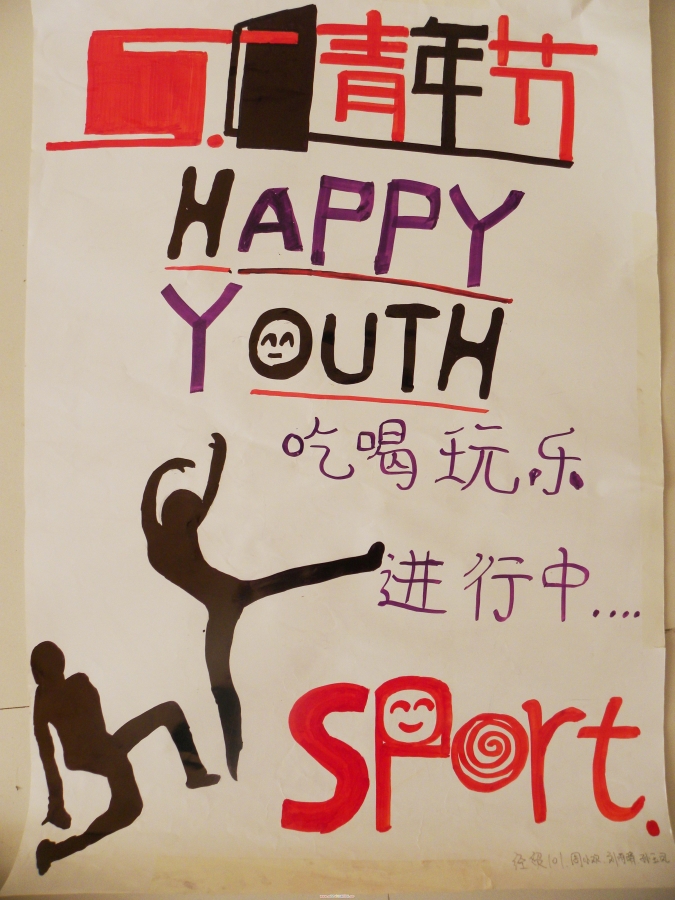 5.4青年节
HAPPY
YOUTH
吃喝玩乐
进行中....
Sport.